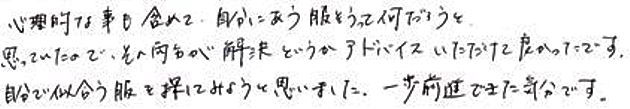 心理的な事も含めて、自分にあう服をうって何だろうと
思っていたので、その内容が解決というかアドバイスいただけて良かったです。
自分で似合う服を探してみようと思いました。一歩前進できた気分です。